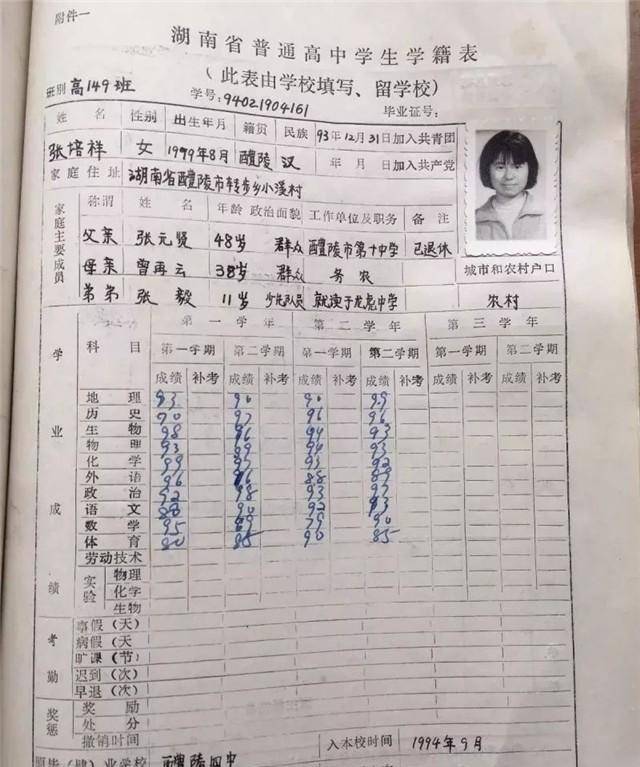 附件一
湖南省普通高中学生学籍表
(此表由学校填写、留学校)
班别 高149班 学号:94021904161 毕业证号:
姓名 性别 出生年月 籍贯 民族 93年12月31日加入共青团
张培祥 女 1979年8月 醴陵 汉 年 月 日加入共产党
家庭住址 湖南省醴陵市转步乡小溪村
家庭主要成员 称谓 姓名 年龄 政治面貌 工作单位及职务 备注
父亲 张元贤 48岁 群众 醴陵市第十中学 已退休
母亲 曾再云 38岁 群众 务农 城市和农村户口
弟弟 张毅 11岁 少先队员 就读于龙虎中学 农村
学业成绩 科目 第一学年 第二学年 第三学年
第一学期 第二学期 第一学期 第二学期 第一学期 第二学期
成绩 补考 成绩 补考 成绩 补考 成绩 补考 成绩 补考 成绩 补考
地理 93 90 90 99
历史 90 97 96 96
生物 98 96 94 93
物理 93 89 94 93
化学 99 97 93 92
外语 96 96 88 89
政治 92 98 93 97
语文 88 90 92 93
数学 95 89 79 90
体育 80 85 90 85
劳动技术
实验 物理
化学
生物
考勤 事假(天)
病假(天
旷课(节)
迟到(次)
早退(次)
奖惩 奖励
处分
撤销时间 入本校时间 1994年9月
原毕(肄)业学校 醴陵四中